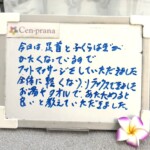 Cenprana
今日は足首とふくらはぎが
かたくなっている時で
フットマッサージをしていただきました
全体に軽くなり、リラックスできました
お湯やタオルで、あたためると
良いと教えていただきました